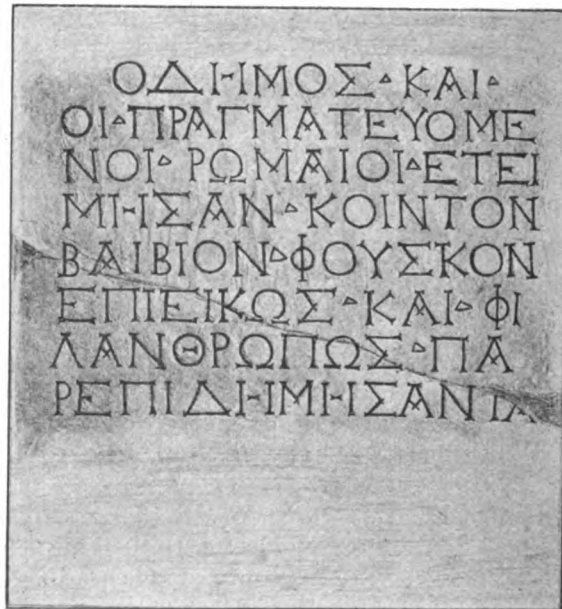 ΟΔΗΜΟΣ▵ΚΑΙ▵
ΟΙ▵ΠΡΑΓΜΑΤΕΥΟΜΕ
ΝΟΙ▵ΡΩΜΑΙΟΙ▵ΕΤΕΙ
ΜΗΣΑΝ▵ΚΟΙΝΤΟΝ
ΒΑΙΒΙΟΝ▵ΦΟΥΣΚΟΝ
ΕΠΙΕΙΚΩΣ▵ΚΑΙ▵ΦΙ
ΛΑΝΘΡΩΠΩΣ▵ΠΑ
ΡΕΠΙΔΗΜΗΣΑΝΤΑ